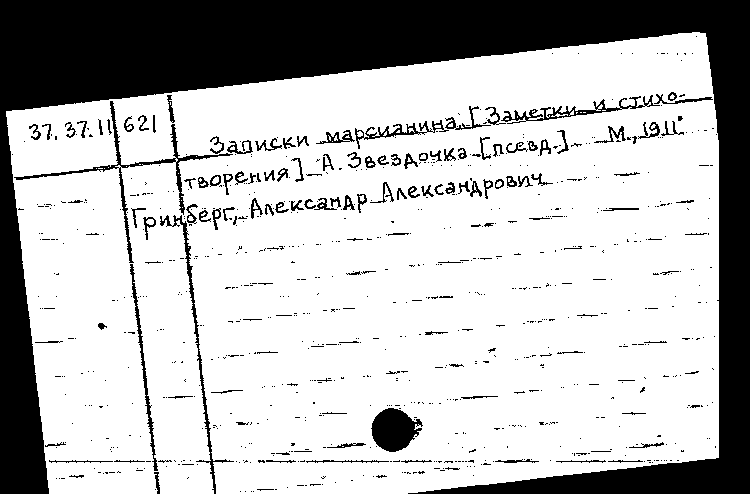 37.37.11 621 Записки марсианина. [Заметки и стихо-
творения] А. Звездочка [псевд.] М., 1911.
Гринберг, Александр Александрович